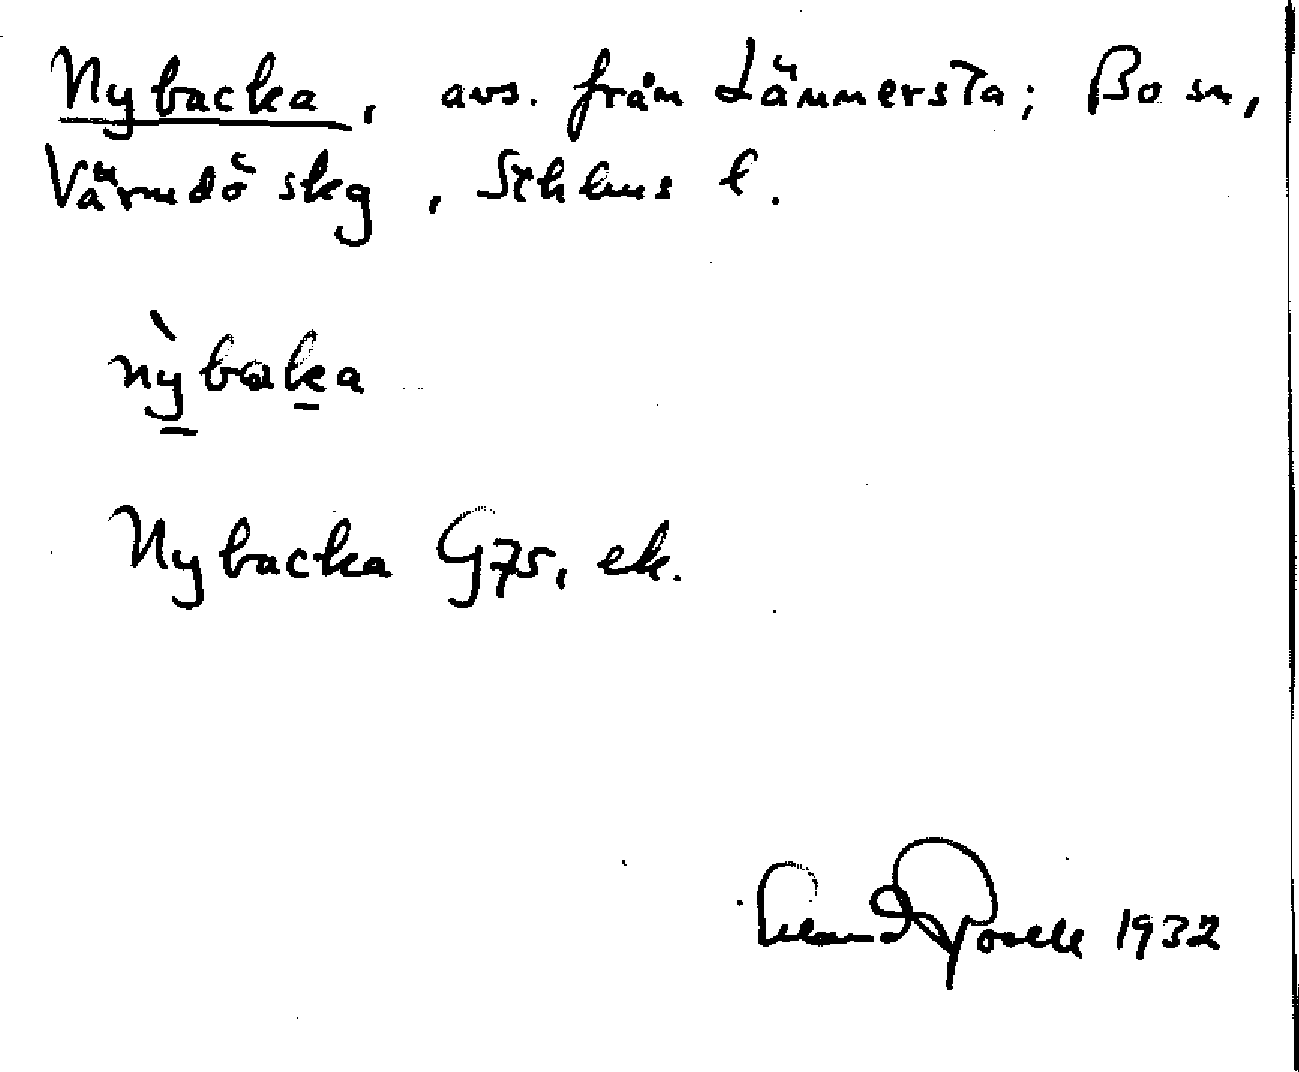 Nybacka, avs. från Lämmersta; Bo sn,
Värmdö skg, Sthlms l.
nỳbaka
Nybacka G75, ek.
Erland Rosell 1932